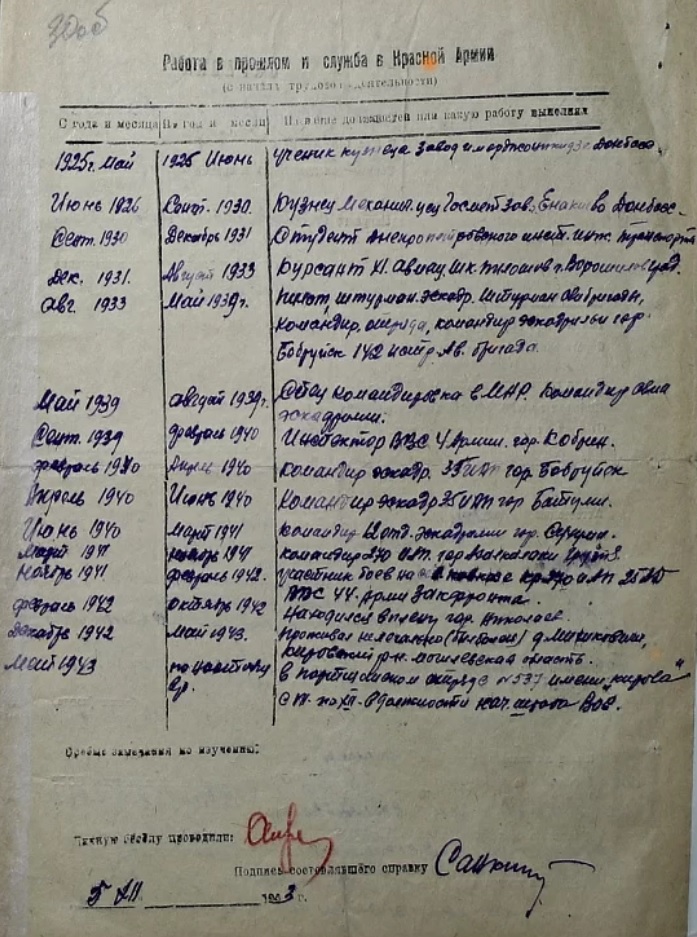 Работа в прошлом и служба в Красной Армии
(с начала трудовой деятельности)
С года и месяца По год и месяц На какие должностей или какую работу выполнял
1925г. Май 1925 Июнь ученик кузнеца завод им орджоникидзе Донбасс.
Июнь 1926 Сент. 1930. Кузнец Механич. цех Госмет Зав. Енакиево Донбасс.
Сент. 1930 Декабрь 1931 Студент Днепропетровского инст. инж. транспорта
Дек. 1931. Август 1933 Курсант XI. Авиац. шк. пилотов г. Ворошиловград.
Авг. 1933 Май 1939г. Пилот, штурман. эскадр. Штурман авиабригады,
Командир, отряда, командир эскадрильи гор.
Бобруйск 142 истр. Ав. бригада.
Май 1939 август 1939г. Спец Командировка в МНР. Командир авиа
эскадрилии.
Сент. 1939 февраль 1940 Инспектор ВВС 4 Армии. гор. Кобрин.
февраль 1940 Апрель 1940 Командир эскадр. 35 ИАП гор. Бобруйск
Апрель 1940 Июнь 1940 Командир эскадр 35 ИАП гор Батуми.
Июнь 1940 Март 1941 Командир отд. эскадрилии гор.
Март 1941 ноябрь 1941 командир 270 ИАП. гор
Ноябрь 1941 февраль 1942. участник боев на ИАП 25
ВВС 44. Арми Закфронта.
февраль 1942 октябрь 1942 Находился в плену гор. Николаев.
Декабрь 1942 Май 1943. Проживал нелегально д.
Кировский р-н. Могилевская область.
Май 1943 по настоящ. в партизанском отряде №537 имени „Кирова"
вр. с по XII. в должности нач. штаба
Особые замечания по изучению:
Личную беседу проводили:
Подпись составлявшего справку
5 XII 1943 г.